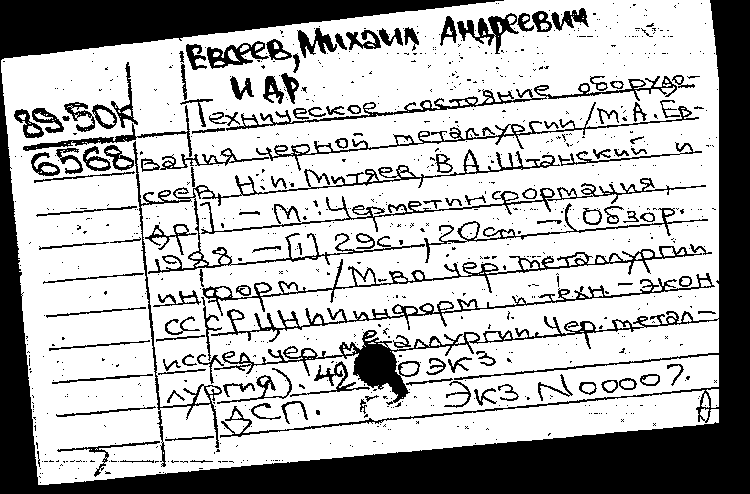 Евсеев, Михаил Андреевич
и др.
89-50К
6568
Техническое состояние оборудо-
вания черной металлургии / М.А. Ев-
сеев, Н.П. Митяев, В.А. Штанский и
др]. - М.: Черметинформация,
1988. - [1], 29с. ; 20см. - (Обзор.
информ. / М-во чер. металлургии
СССР, ЦНИИинформ. и техн.-экон.
исслед. чер. металлургии. Чер. метал-
лургия). ОЭКЗ.
ДСП. Экз. N00007.